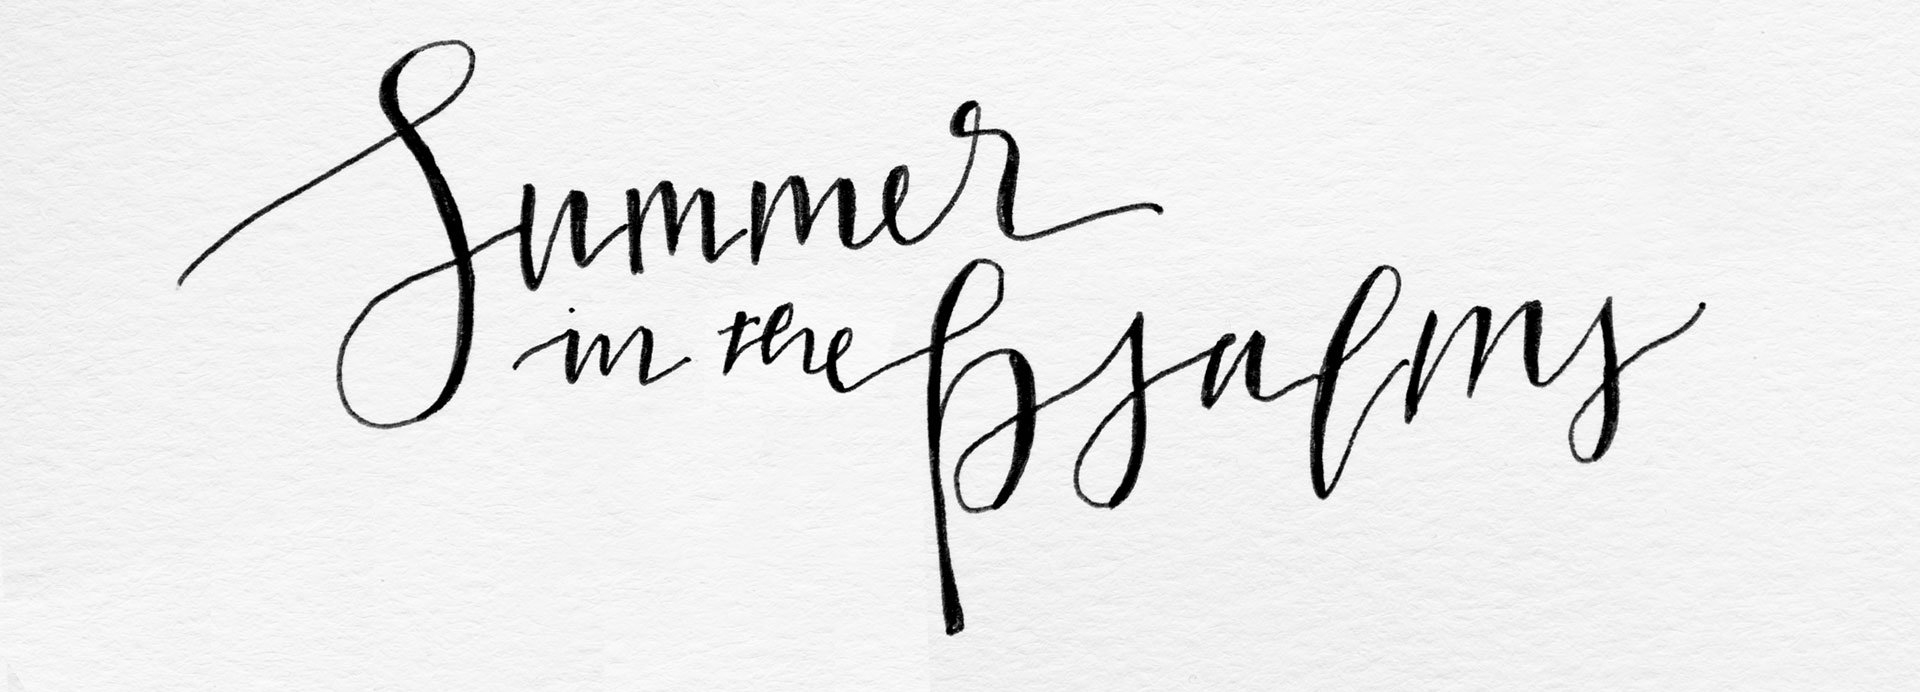 Summer
in the Psalms